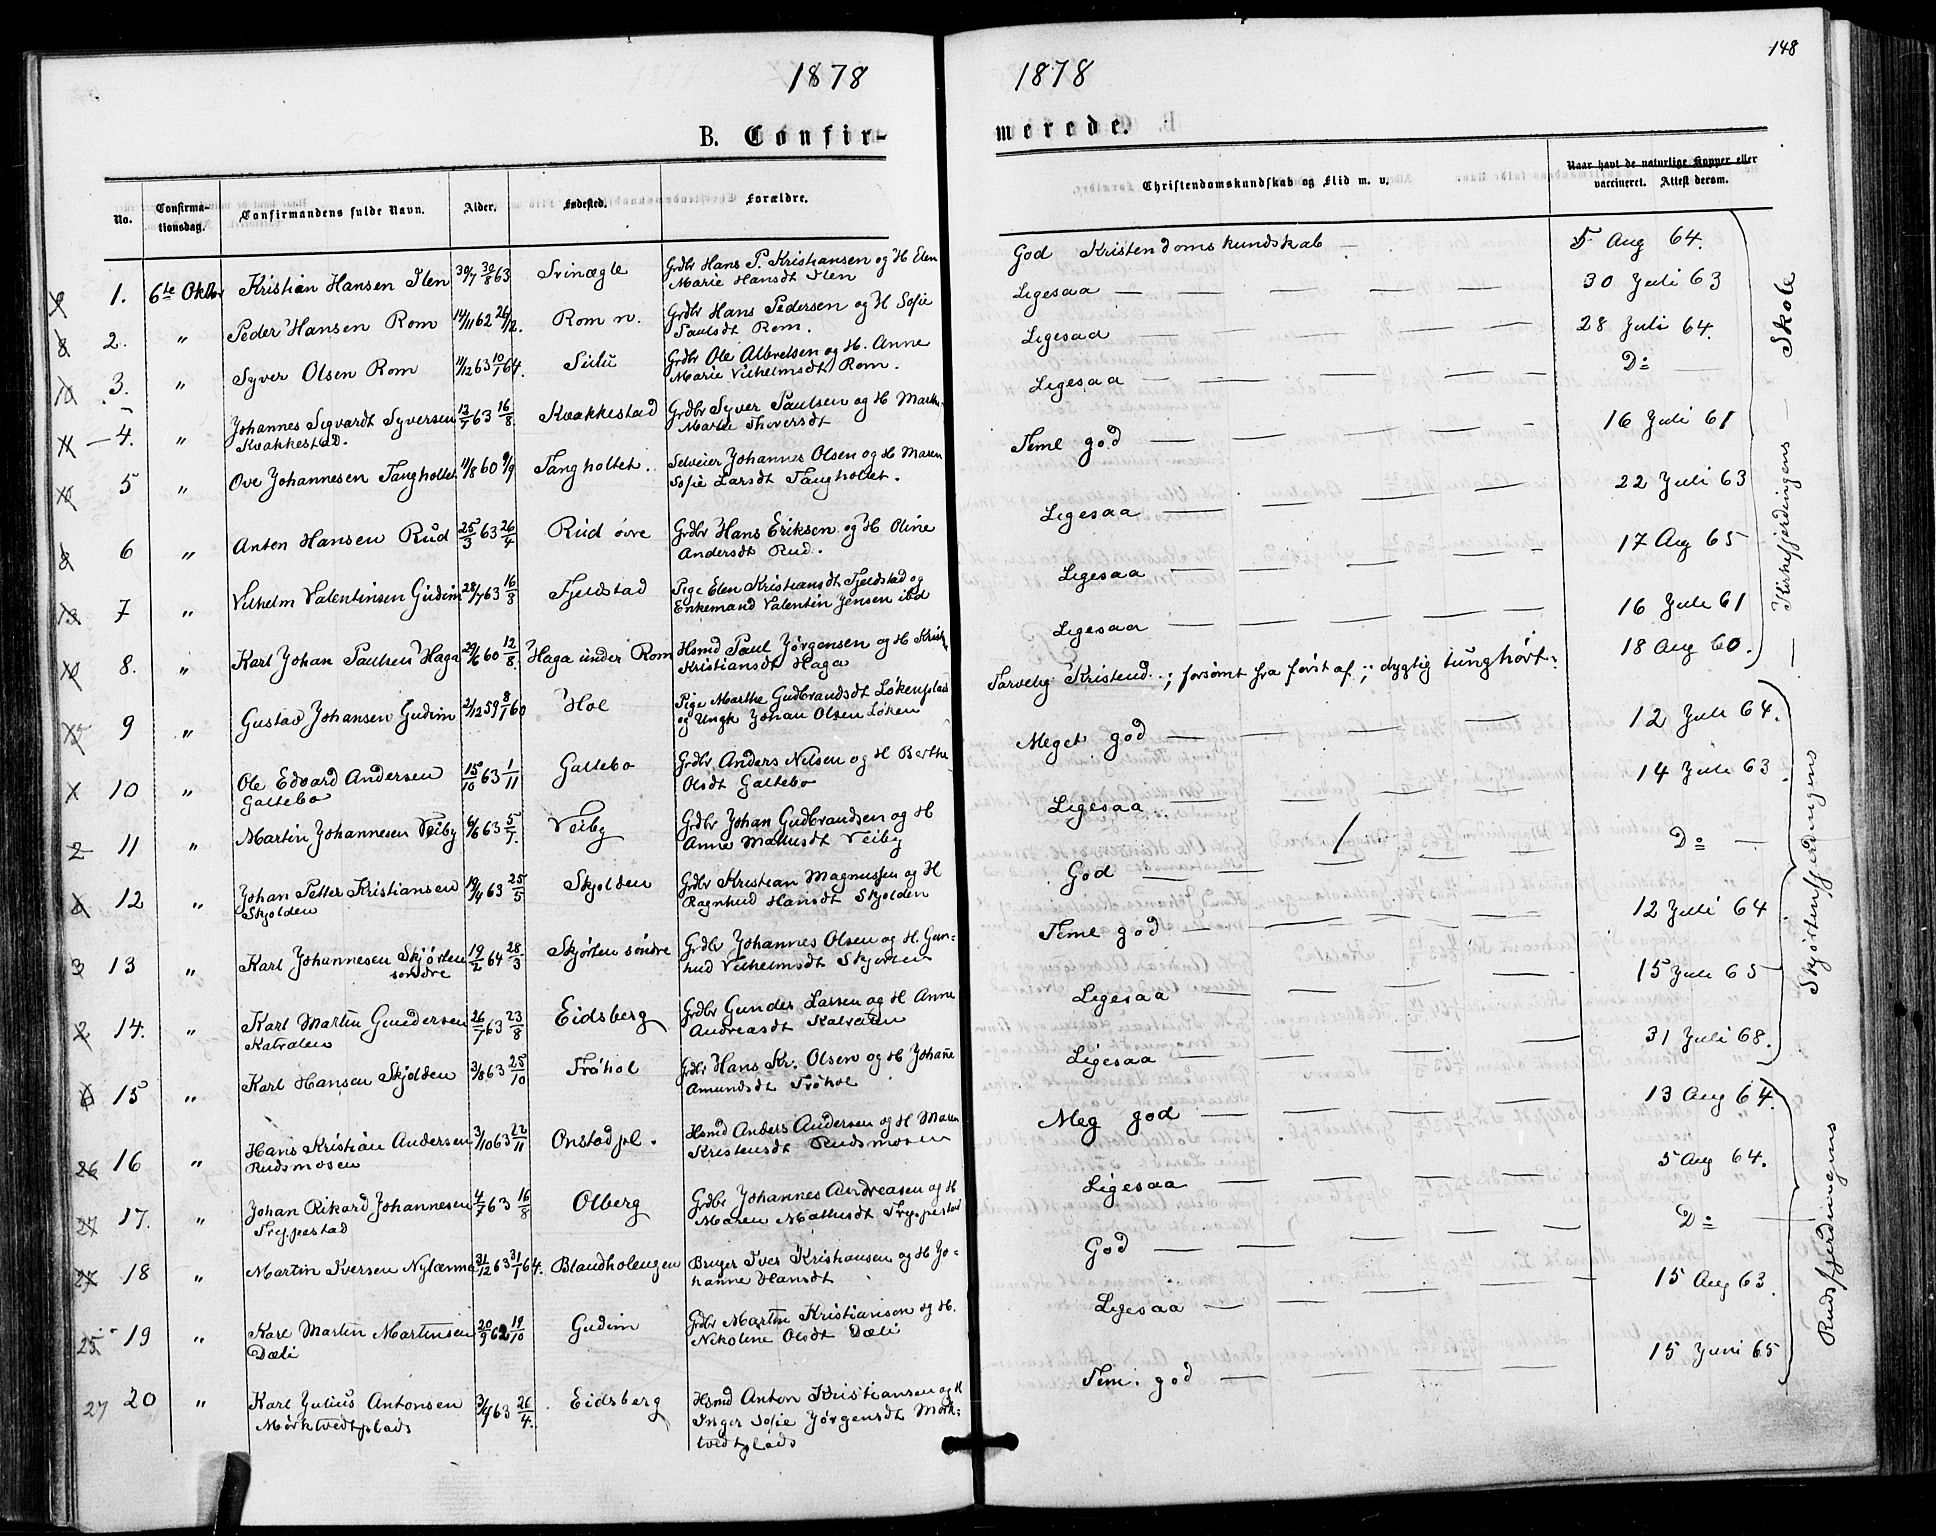 1878
B. Confir-
No.
Confirma-
tionsdag.
Confirmandens fulde Navn.
Alder.
Fødested.
Forældre.
1. 6te Oktbr Kristian Hansen Ilen 30/7 30/8 63 Svinægle Grdbr Hans P. Kristiansen og H Elen
Marie Hansdt Ilen
2. " Peder Hansen Rom 14/11 62 26/12. Rom n. Grdbr Hans Pedersen og H Sofie
Paulsdt Rom.
3. " Syver Olsen Rom 11/12 63 10/1 64. Grdbr Ole Albretsen og H. Anne
Marie Vilhelmsdt Rom.
4. " Johannes Sigvardt Syversen 13/7 63 16/8. Kvakkestad Grdbr Syver Paulsen og H
Kvakkestad. Marie
5 " Ove Johannesen Tangholtet 11/8 60 9/9 Tangholtet. Selveier Johannes Olsen og H Maren
Sofie Larsdt Tangholtet.
6 " Anton Hansen Rud 25/3 63 26/4 Rud övre Grdbr Hans Eriksen og H Oline
Andersdt Rud.
7 " Vilhelm Valentinsen Gudim 28/7 63 16/8 Fjeldstad Pige Elen Kristiansdt Fjeldstad og
Enkemand Valentin Jensen ibd
8. " Karl Johan Paulsen Haga 29/6 60 12/8. Haga under Rom Hsmd Paul Jörgensen og H
Kristiansdt Haga
9 " Gustav Johansen Gudim 2/12 59 8/1 60 Hol Pige Marthe Gudbrandsdt Lökenplads
og Ungk Johan Olsen Löken
10 " Ole Edvard Andersen 15/10 63 1/11 Galtebo Grdbr Anders Nilsen og H Berthe
Galtebo Olsdt Galtebo
2 11 " Martin Johannesen Veiby 6/6 63 5/7. Veiby Grdbr Johan Gudbrandsen og H
Anne Mathisdt Veiby
12 " Johan Petter Kristiansen 19/4 63 25/5 Skjolden Grdbr Kristian Magnussen og H
Skjolden Ragnhild Hansdt Skjolden
3 13 " Karl Johannesen Skjörten 19/2 64 28/3 Skjörten söndre Grdbr Johannes Olsen og H. Gun-
söndre hild Vilhelmsdt Skjörten
2 14. " Karl Martin Gundersen 26/7 63 23/8 Eidsberg Grdbr Gunder Larsen og H Anne
Katralen Andreasdt Katralen
15 " Karl Hansen Skjolden 3/8 63 25/10 Tröhol Grdbr Hans Kr. Olsen og H Johanne
Amundsdt Tröhol
26 16 " Hans Kristian Andersen 3/10 63 22/11 Onstad pl. Hsmd Anders Andersen og H Maren
Rudsmosen Kristensdt Rudsmosen
27 17. " Johan Rikard Johannesen 4/7 63 16/8 Olberg Grdbr Johannes Andreasen og H
Tryppestad Maren Mathisdt Tryppestad
18 " Martin Iversen Nylænna 31/12 63 31/1 64. Blandholengen Bruger Iver Kristiansen og H Jo-
hanne Hansdt
25 19 " Karl Martin Martinsen 20/9 62 19/10 Gudim Grdbr Martin Kristianson og H.
Dæli Nikoline Olsdt Dæli
27 20 " Karl Julius Antonsen 3/4 63 26/4. Eidsberg Hsmd Anton Kristiansen og H
Mörktvedtplads Inger Sofie Jörgensdt Mörk-
tvedtplads
148
1878
merede.
Christendomskundskab og Flid m. v.
Naar havt de naturlige Kopper eller
vaccineret. Attest derom.
God Kristendomskundskab — 5 Aug 64.
Ligesaa — 30 Juli 63
Ligesaa — 28 Juli 64.
Ligesaa — Do —
Teml god — 16 Juli 61
Ligesaa — 22 Juli 63
Ligesaa — 17 Aug 65
Ligesaa — 16 Juli 61
Tarvelig Kristend.; forsömt fra först af; dygtig tunghört. 18 Aug 60.
Kirkefjerdingens — Skole
Meget god — 12 Juli 64.
Ligesaa — 14 Juli 63.
God — Do —
Teml god — 12 Juli 64
Ligesaa — 15 Juli 65
Ligesaa — 31 Juli 68.
Skjörtenfjerdingens
Meg god — 13 Aug 64.
Ligesaa — 5 Aug 64.
God — Do —
Ligesaa — 15 Aug 63.
Tem. god — 15 Juni 65
Rudsfjerdingens